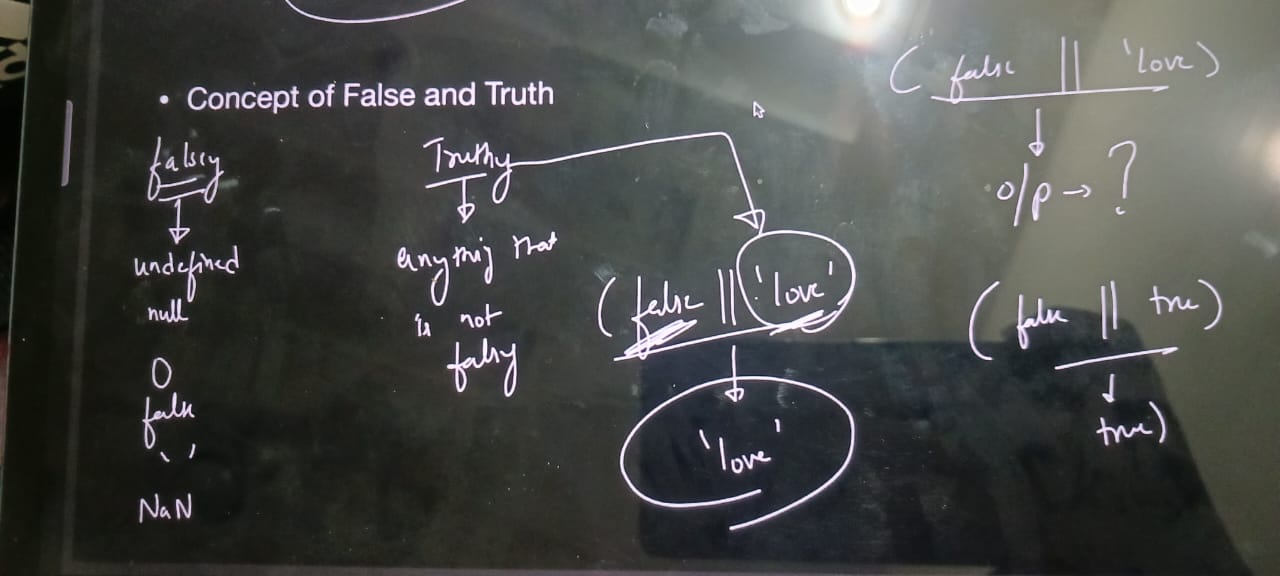 • Concept of False and Truth
falsiy
undefined
null
0
false
' '
NaN
Truthy
anything that
is not
falsy
(false || 'love')
'love'
(false || 'love)
o/p → ?
(false || true)
true)